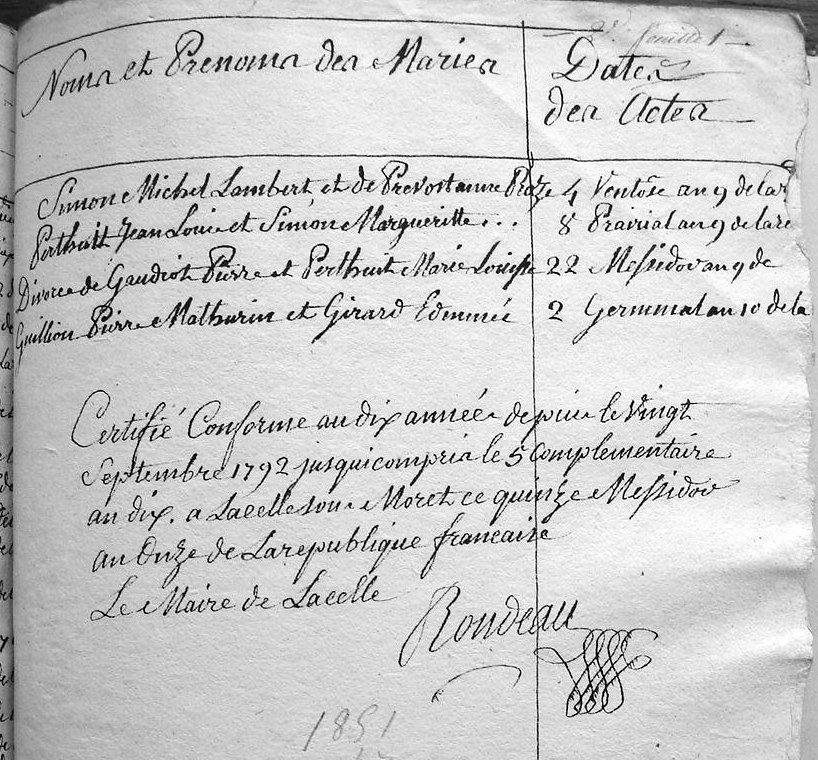 2e feuille 1
Noms et Prenoms des Maries
Dates
des Actes
Simon Michel Lambert et de Prevost anne Roze 4 Ventôse an 9 de la r
Perthuit Jean Louis et Simon Margueritte... 8 Prairial an 9 de la re
Divorce de Gaudiot Pierre et Perthuit Marie Louise 22 Messidor an 9 de
Guillion Pierre Mathurin et Girard Edmmée 2 Germinal an 10 de la
Certifié Conforme au dix années depuis le Vingt
Septembre 1792 jusquicompris le 5 Complementaire
an dix. a Lacelle sous Moret ce quinze Messidor
an Onze de Larepublique francaise
Le Maire de Lacelle
Rondeau
1851